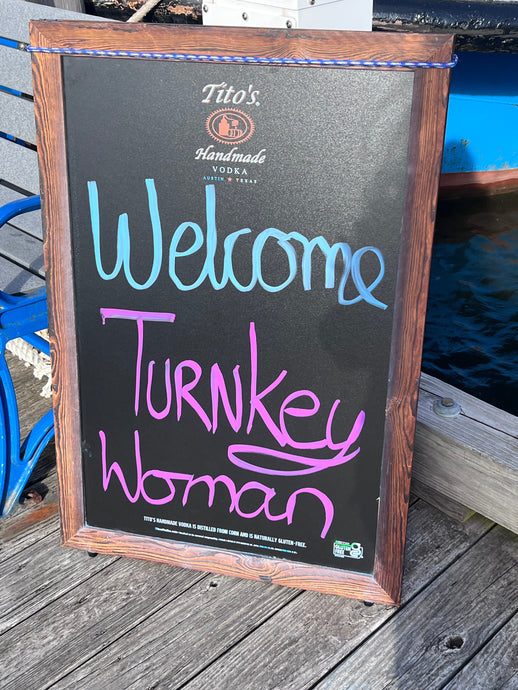 Tito's.
Handmade
VODKA
AUSTIN ★ TEXAS
Welcome
TURNKey
Woman
TITO'S HANDMADE VODKA IS DISTILLED FROM CORN AND IS NATURALLY GLUTEN-FREE.
GLUTEN
FREE